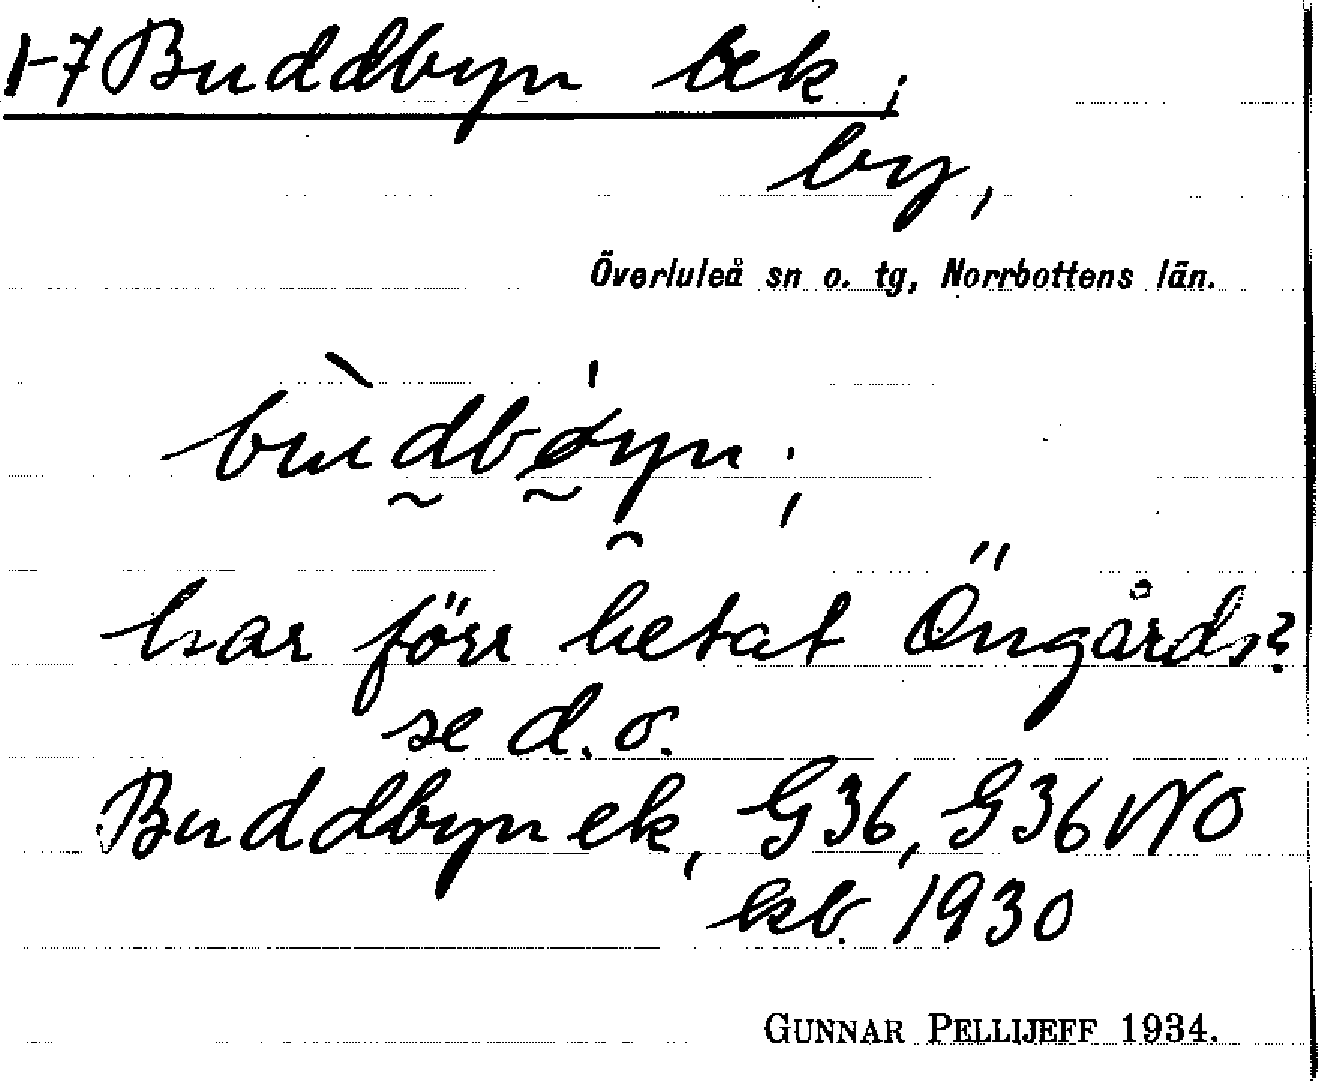 1-7 Buddbyn ek ;
by,
Överluleå sn o. tg, Norrbottens län.
bùdbøyn ;
har förr hetat Öngårds?
se d.o.
Buddbyn ek, G36, G36NO
kb. 1930
GUNNAR PELLIJEFF 1934.